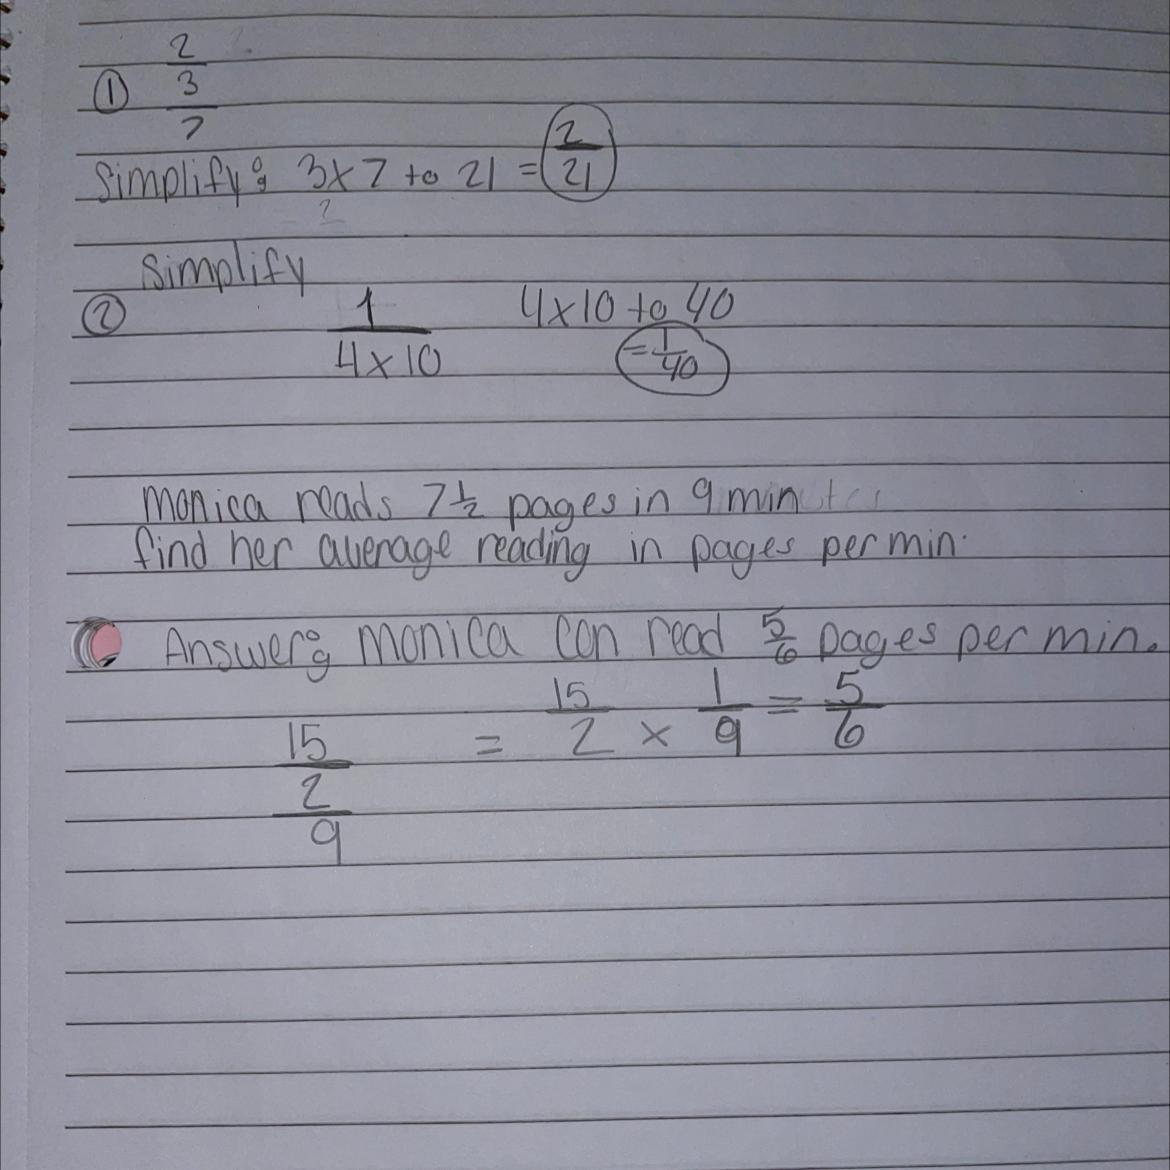 ① 2/3/7
Simplify: 3x7 to 21 = 2/21
Simplify
② 1/4x10 4x10 to 40
= 1/40
Monica reads 7 1/2 pages in 9 minutes
find her average reading in pages per min.
Answer: Monica can read 5/6 pages per min.
15/2/9 = 15/2 x 1/9 = 5/6